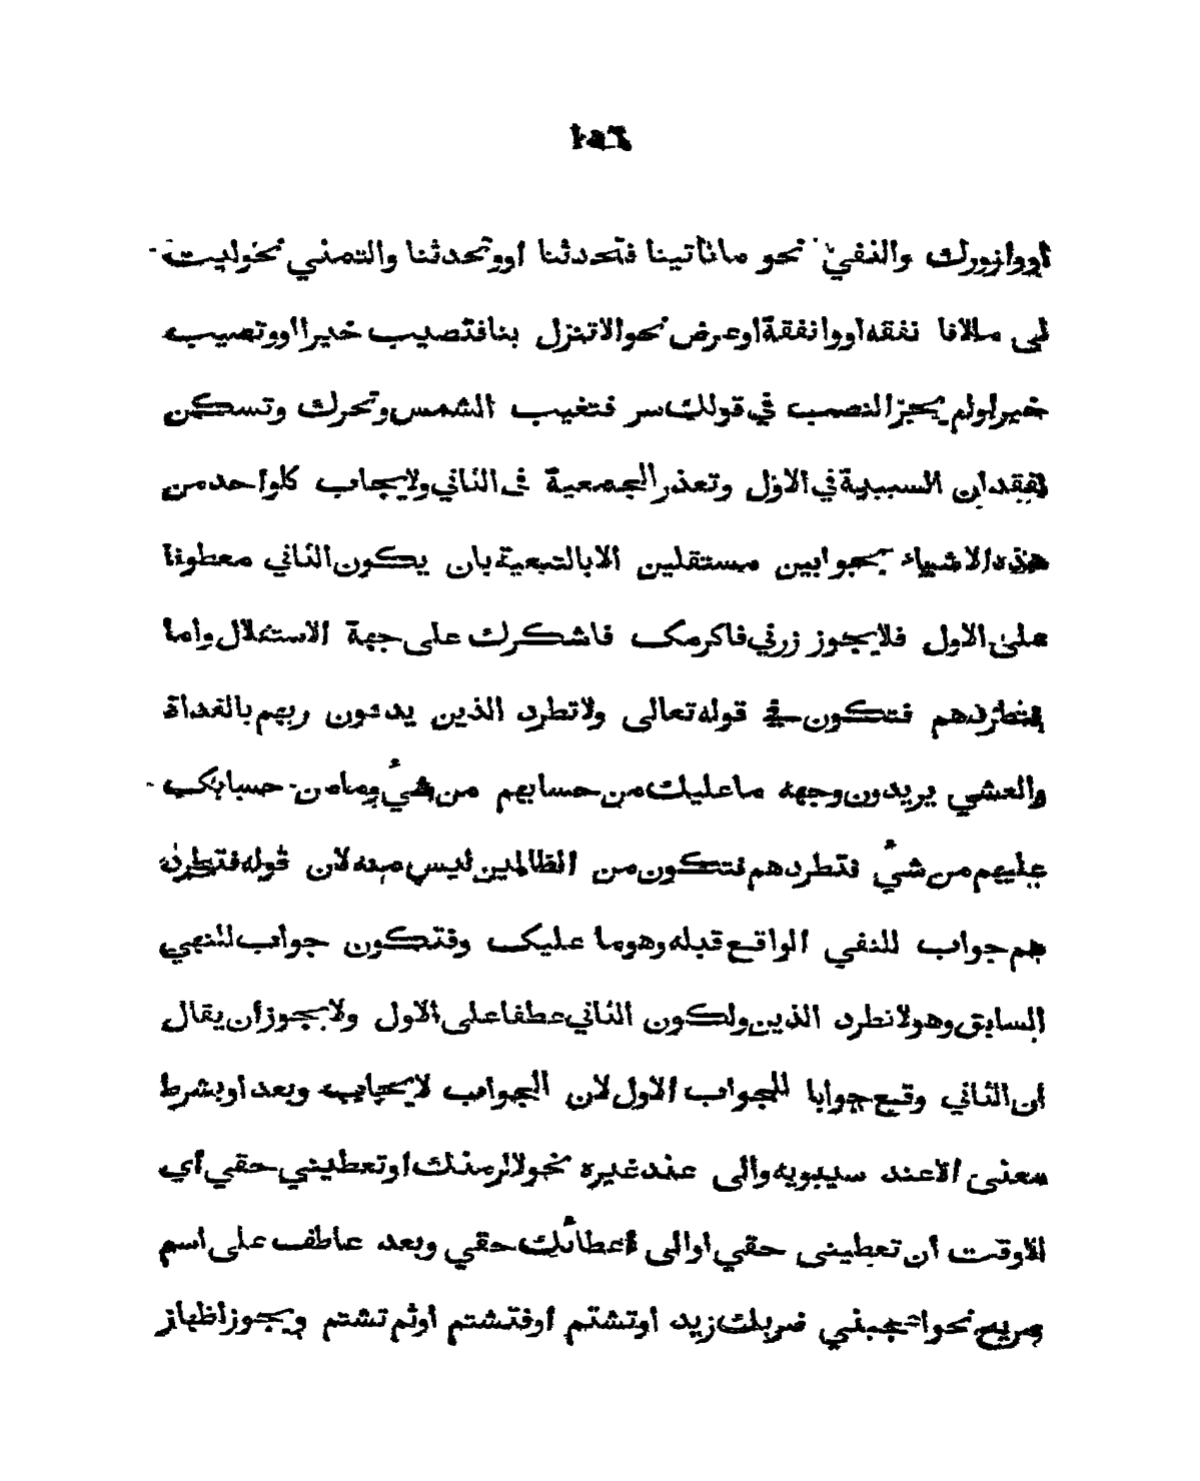 ١٥٦
أووازورك والنفي نحو ماتأتينا فتحدثنا اووتحدثنا والتمني نحوليت
لي مالافا نفقه اووانفقة اوعرض نحوالاتنزل بنافتصيب خيرا اووتصيب
خيراولم يجزالنصب في قولك سر فتغيب الشمس وتحرك وتسكن
لفقدان السببية في الاول وتعذر الجمعية في الثاني ولايجاب كلواحدمن
هذه الاشياء بجوابين مستقلين الابالتبعية بان يكون الثاني معطوفا
على الاول فلايجوز زرني فاكرمك فاشكرك على جهة الاستقلال واما
فتطردهم فتكون في قوله تعالى ولاتطرد الذين يدعون ربهم بالغداة
والعشي يريدون وجهه ماعليك من حسابهم من شئ ومامن حسابك
عليهم من شئ فتطردهم فتكون من الظالمين ليس منه لان قوله فتطرد
هم جواب للنفي الواقع قبله وهوما عليك وفتكون جواب للنهي
السابق وهولاتطرد الذين ولكون الثاني عطفا على الاول ولايجوزأن يقال
ان الثاني وقع جوابا للجواب الاول لان الجواب لايجاب وبعد اوبشرط
معنى الاعند سيبويه والى عند غيره نحولالزمنك اوتعطيني حقي أي
الاوقت أن تعطيني حقي اوالى أعطائك حقي وبعد عاطف على اسم
صريح نحواعجبني ضربك زيد اوتشتم أوفتشتم أوثم تشتم ويجوزاظهار